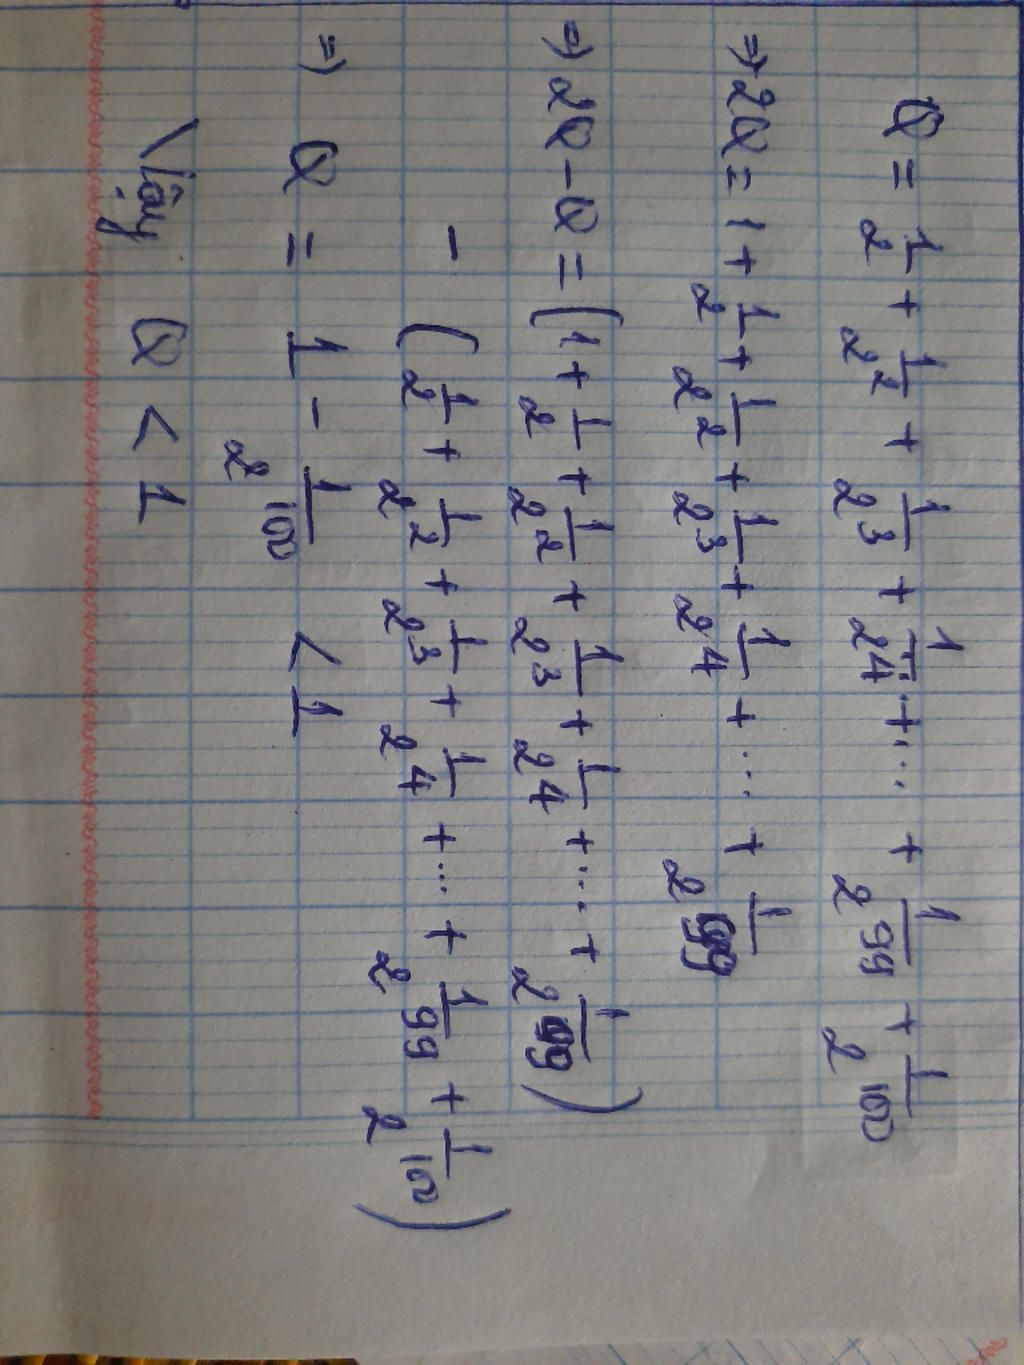 Q = 1/2 + 1/2² + 1/2³ + 1/2⁴ + ... + 1/2⁹⁹ + 1/2¹⁰⁰
=> 2Q = 1 + 1/2 + 1/2² + 1/2³ + 1/2⁴ + ... + 1/2⁹⁹
=> 2Q - Q = (1 + 1/2 + 1/2² + 1/2³ + 1/2⁴ + ... + 1/2⁹⁹)
- (1/2 + 1/2² + 1/2³ + 1/2⁴ + ... + 1/2⁹⁹ + 1/2¹⁰⁰)
=> Q = 1 - 1/2¹⁰⁰ < 1
Vậy Q < 1